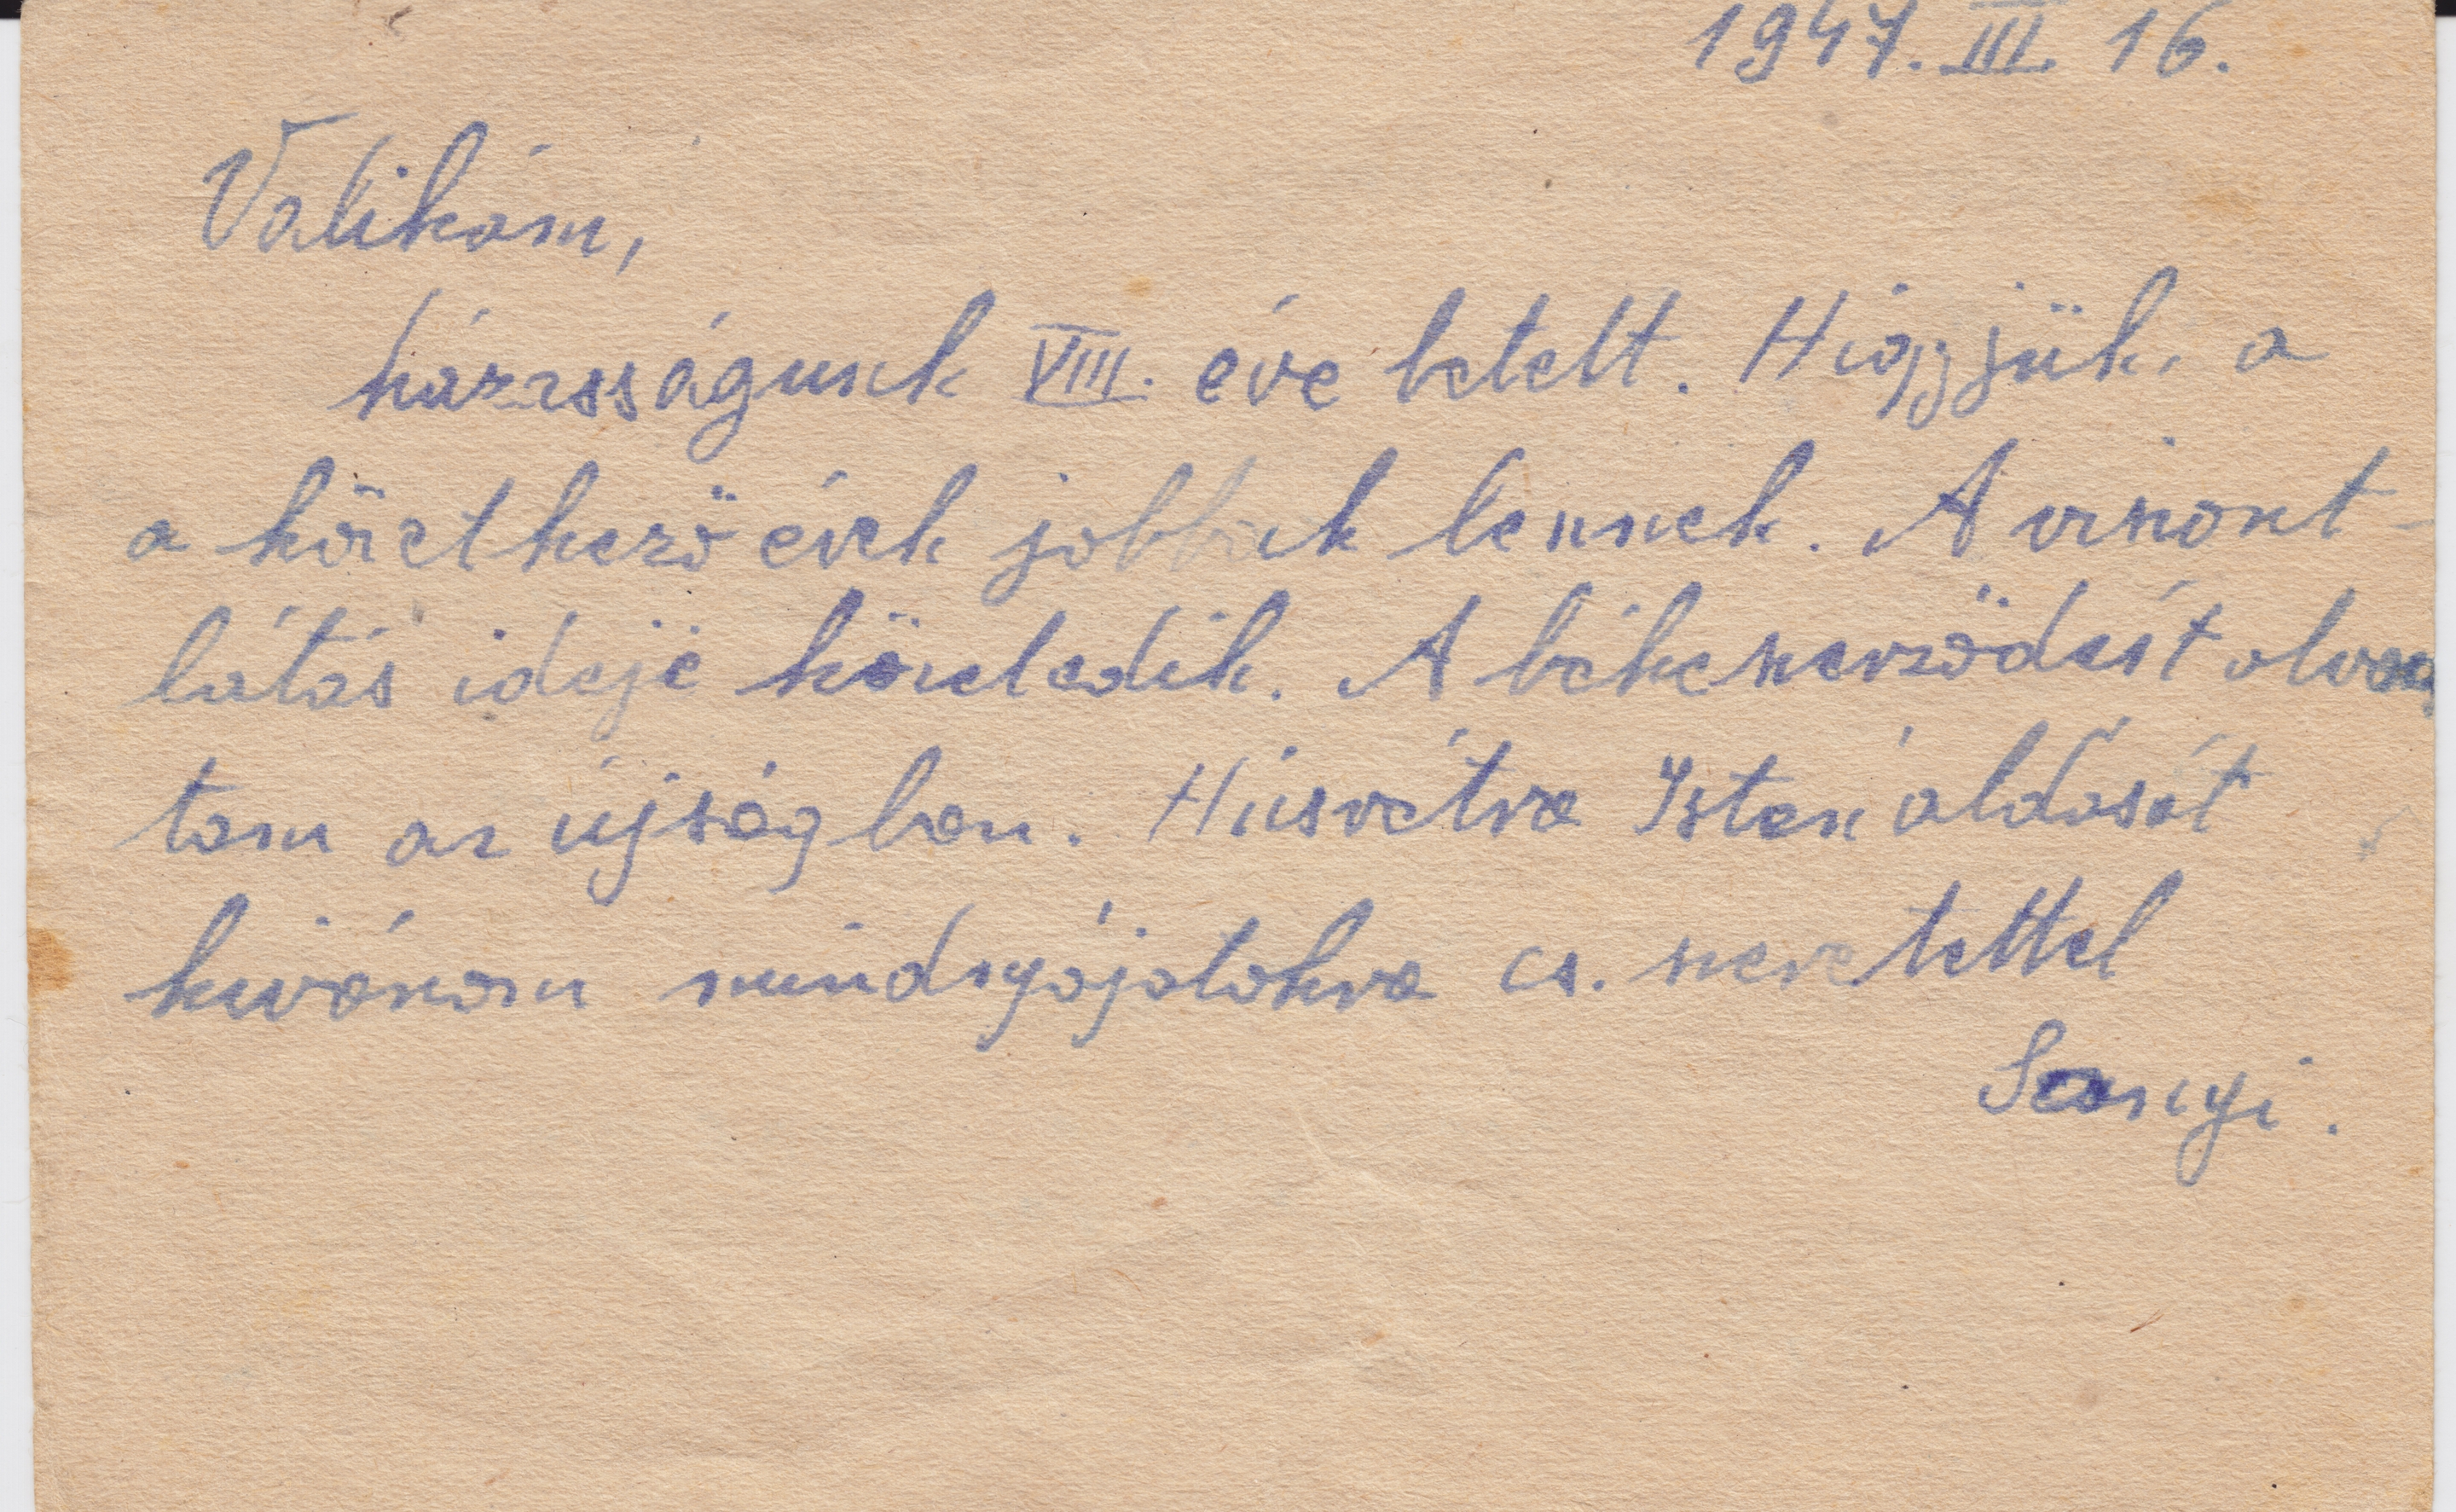 1947. III. 16.
Valikám,
házasságunk VIII. éve betelt. Higyjük, a
a következő évek jobbak lennek. A viszont-
látás ideje közeledik. A békeszerződést olvas
tam az újságban. Húsvétra Isten áldását
kivánom mindnyájatokra cs. szeretettel
Sanyi.